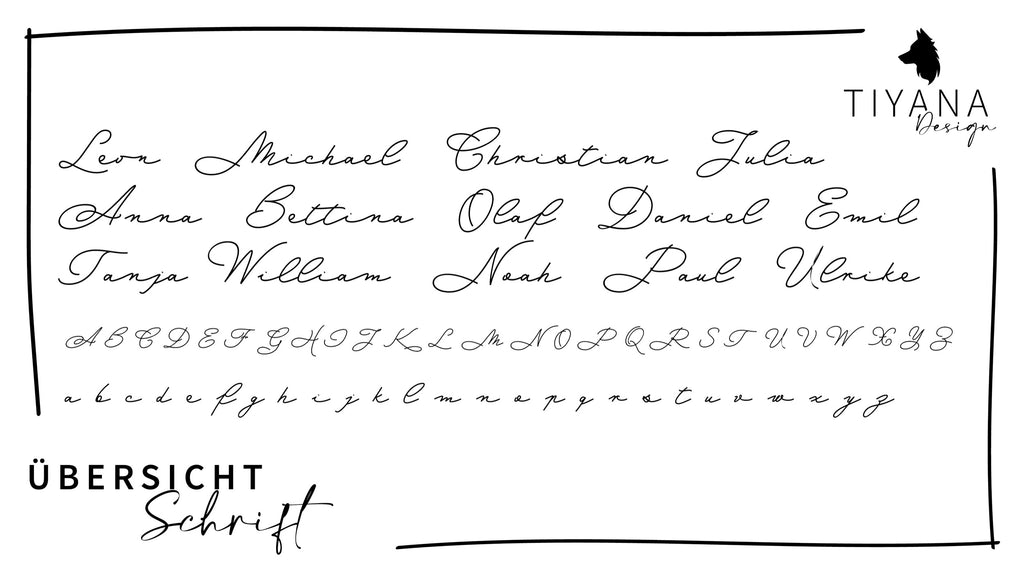 TIYANA
Design
Leon Michael Christian Julia
Anna Bettina Olaf Daniel Emil
Tanja William Noah Paul Ulrike
A B C D E F G H I J K L M N O P Q R S T U V W X Y Z
a b c d e f g h i j k l m n o p q r s t u v w x y z
ÜBERSICHT
Schrift